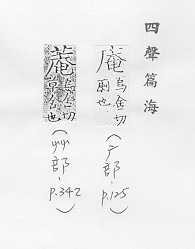 四聲篇海
庵 烏含切
廁也
(广部、p.125)
菴
(艸部、p.342)